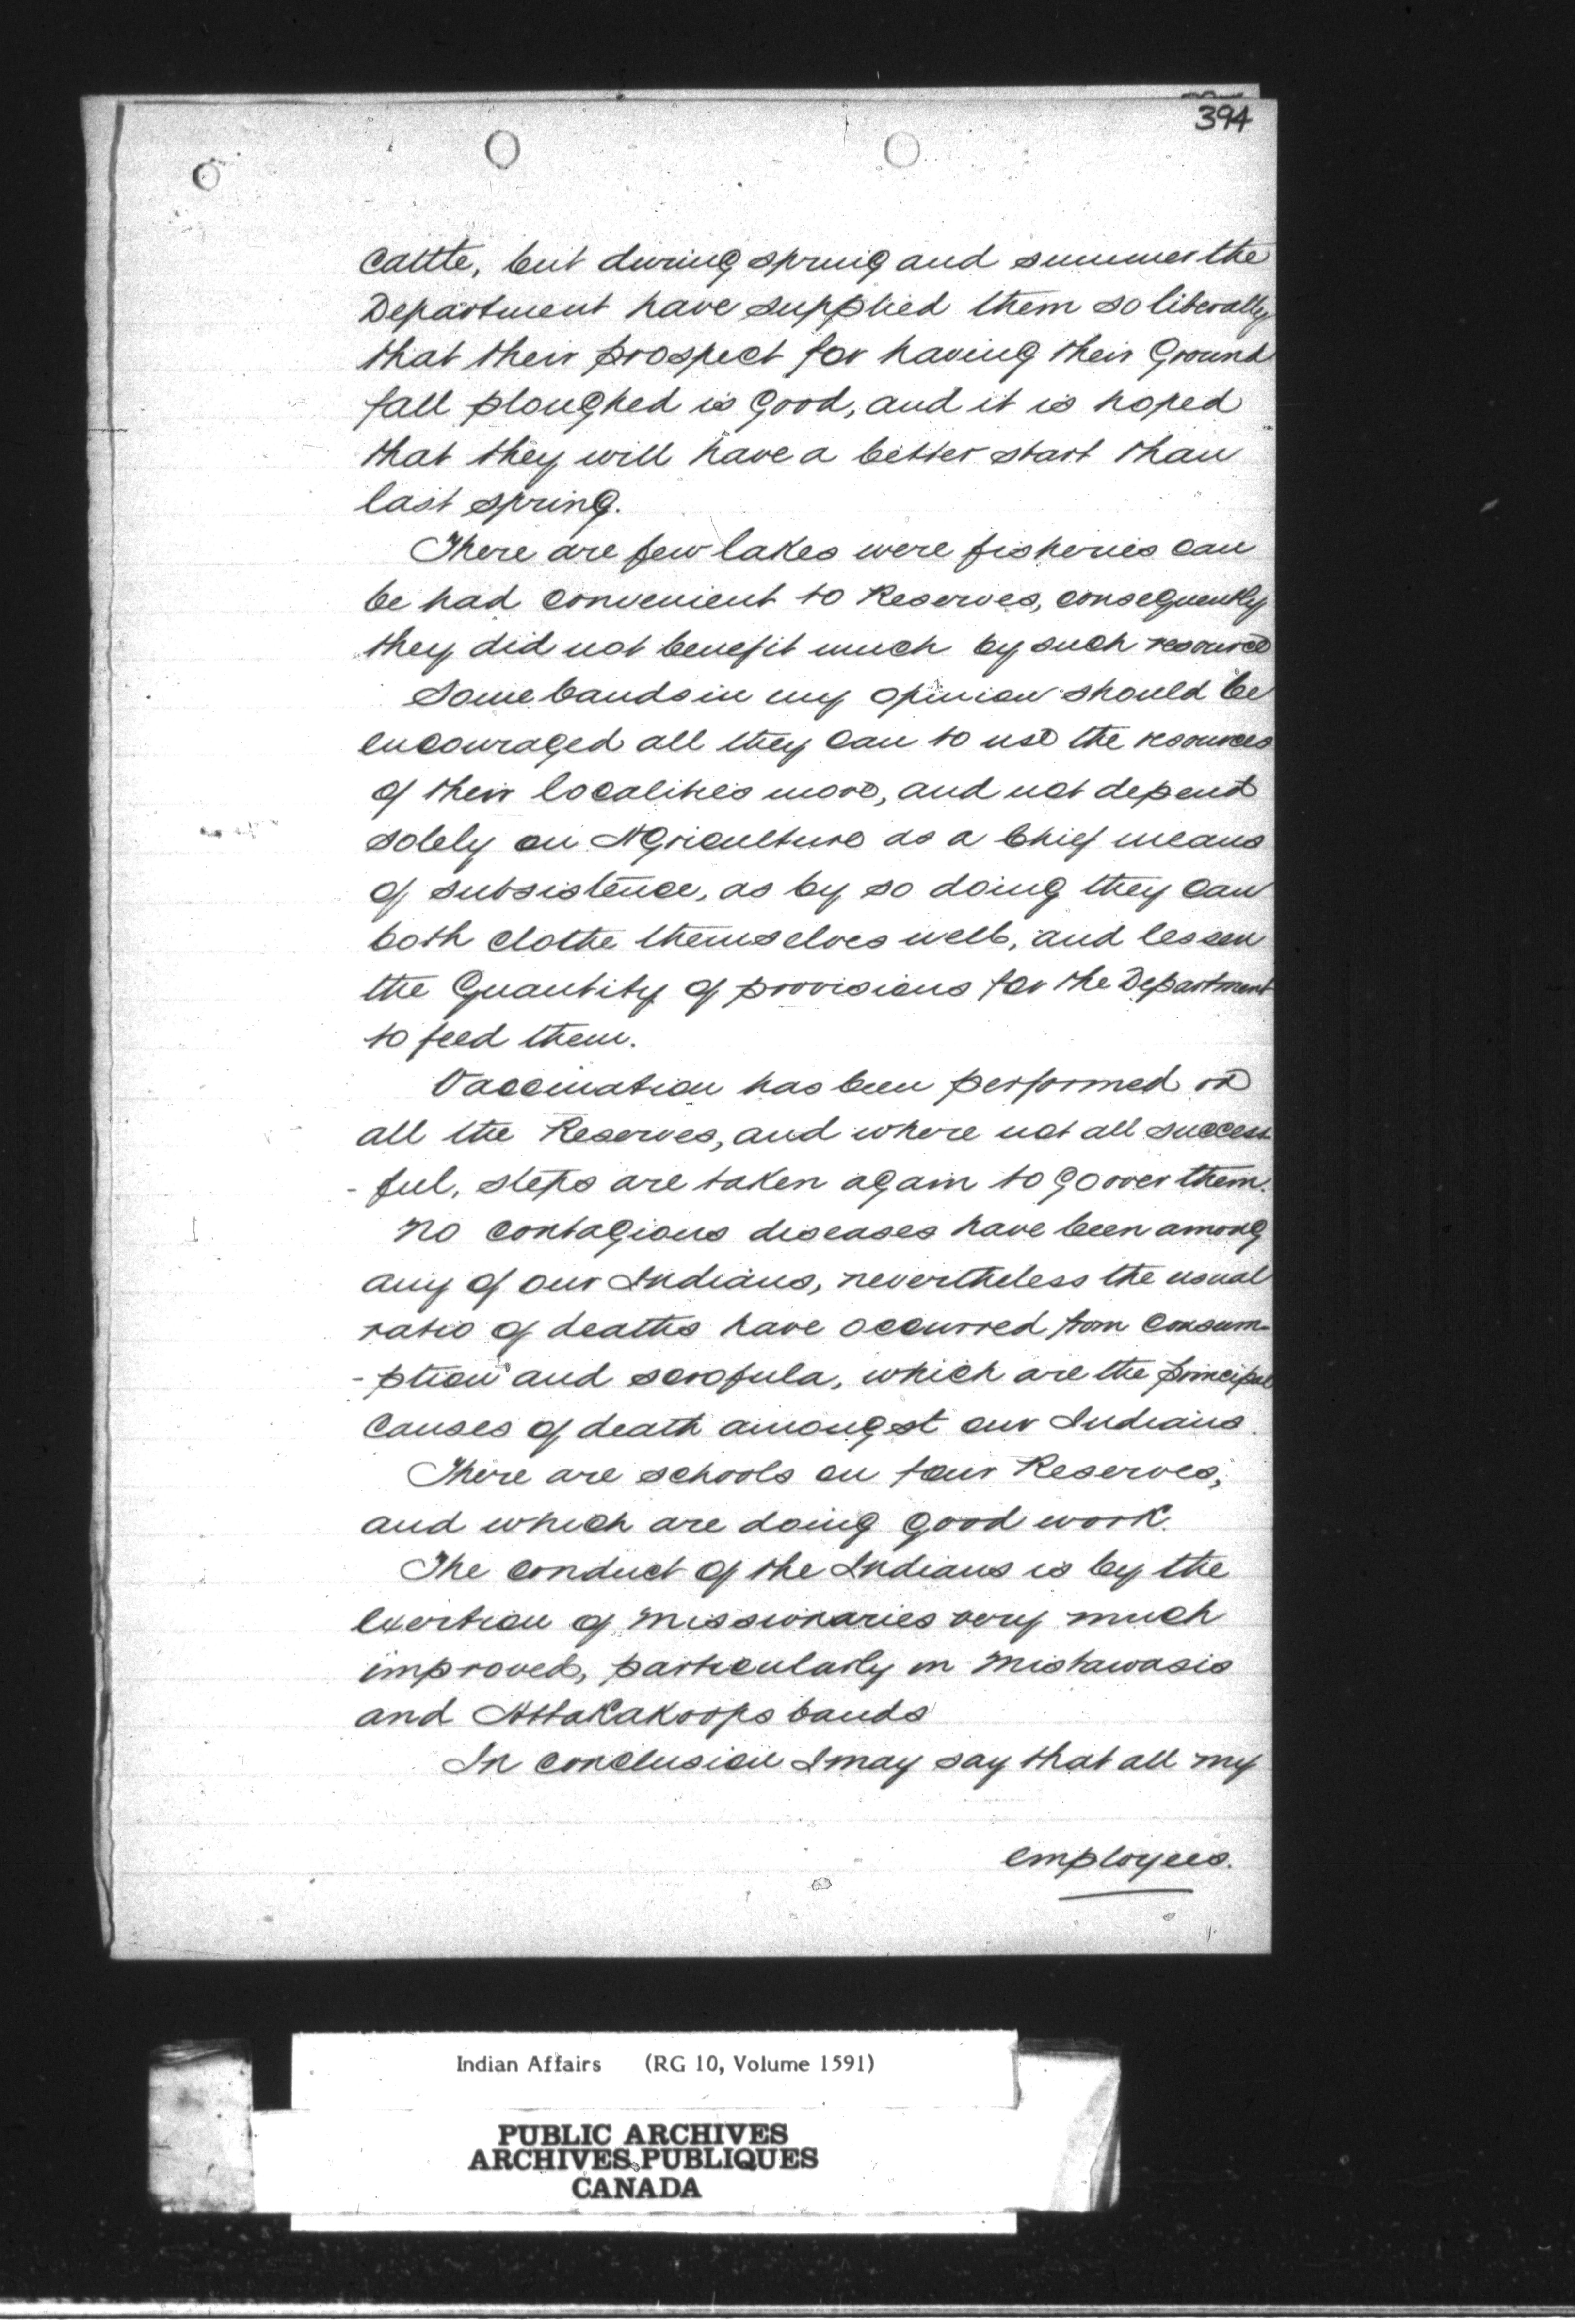 394
cattle, but during spring and summer the
Department have supplied them so liberally
that their prospect for having their Ground
fall ploughed is Good, and it is hoped
that they will have a better start than
last spring.
There are few lakes were fisheries can
be had convenient to Reserves, consequently
they did not benefit much by such resource
Some bands in my opinion should be
encouraged all they can to use the resources
of their localities more, and not depend
solely on Agriculture as a Chief means
of subsistence, as by so doing they can
both clothe themselves well, and lessen
the Quantity of provisions for the Department
to feed them.
Vaccination has been performed on
all the Reserves, and where not all success
- ful, steps are taken again to go over them.
No contagious diseases have been among
any of our Indians, nevertheless the usual
ratio of deaths have occurred from Consum-
- ption and scrofula, which are the principal
Causes of death amongst our Indians.
There are schools on four Reserves,
and which are doing good work.
The conduct of the Indians is by the
exertion of Missionaries very much
improved, particularly in Mistawasis
and Attakakoops bands
In conclusion I may say that all my
employees.
Indian Affairs (RG 10, Volume 1591)
PUBLIC ARCHIVES
ARCHIVES PUBLIQUES
CANADA